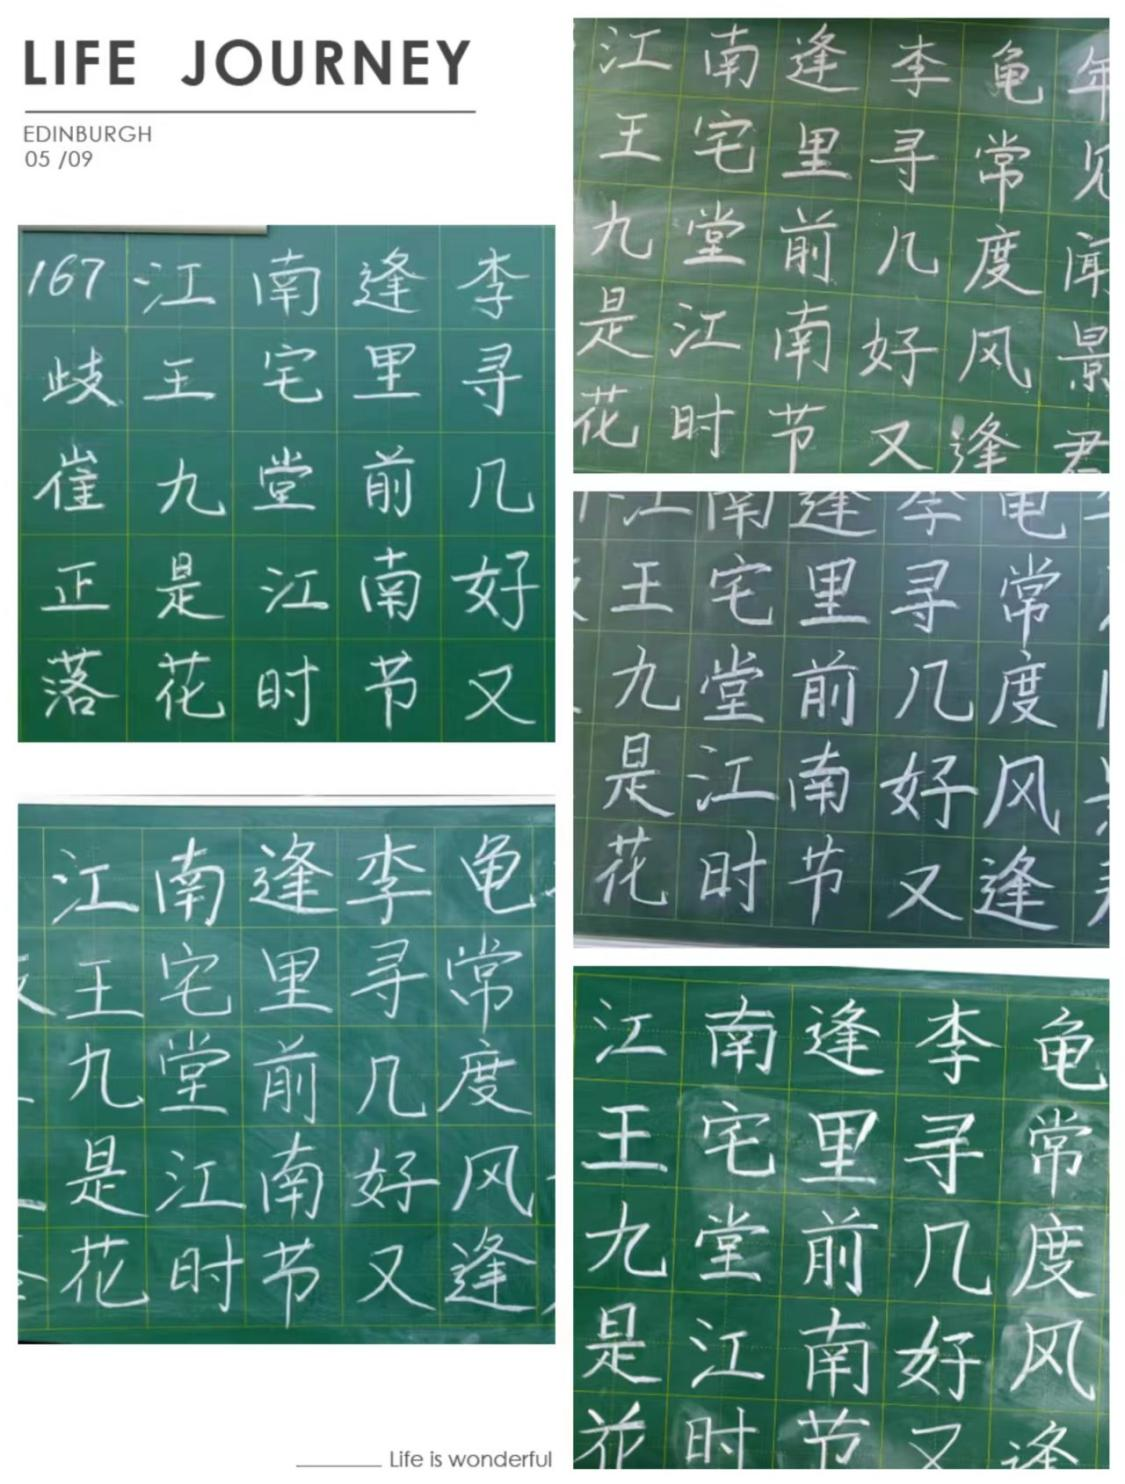 LIFE JOURNEY
EDINBURGH
05 /09
167 江南逢李
歧王宅里寻
崔九堂前几
正是江南好
落花时节又
江南逢李龟
王宅里寻常
九堂前几度
是江南好风
花时节又逢
Life is wonderful
江南逢李龟年
王宅里寻常见
九堂前几度闻
是江南好风景
花时节又逢君
江南逢李龟
王宅里寻常
九堂前几度
是江南好风
花时节又逢
江南逢李龟
王宅里寻常
九堂前几度
是江南好风
花时节又逢